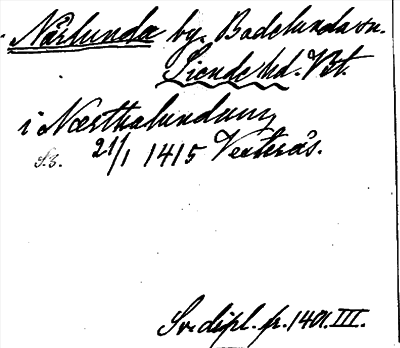 Närlunda by, Badelunda sn.
Siende hd. Vst.
i Nærthalundum
S. 3. 21/1 1415 Vesterås.
Sv. dipl. fr. 1401. III.